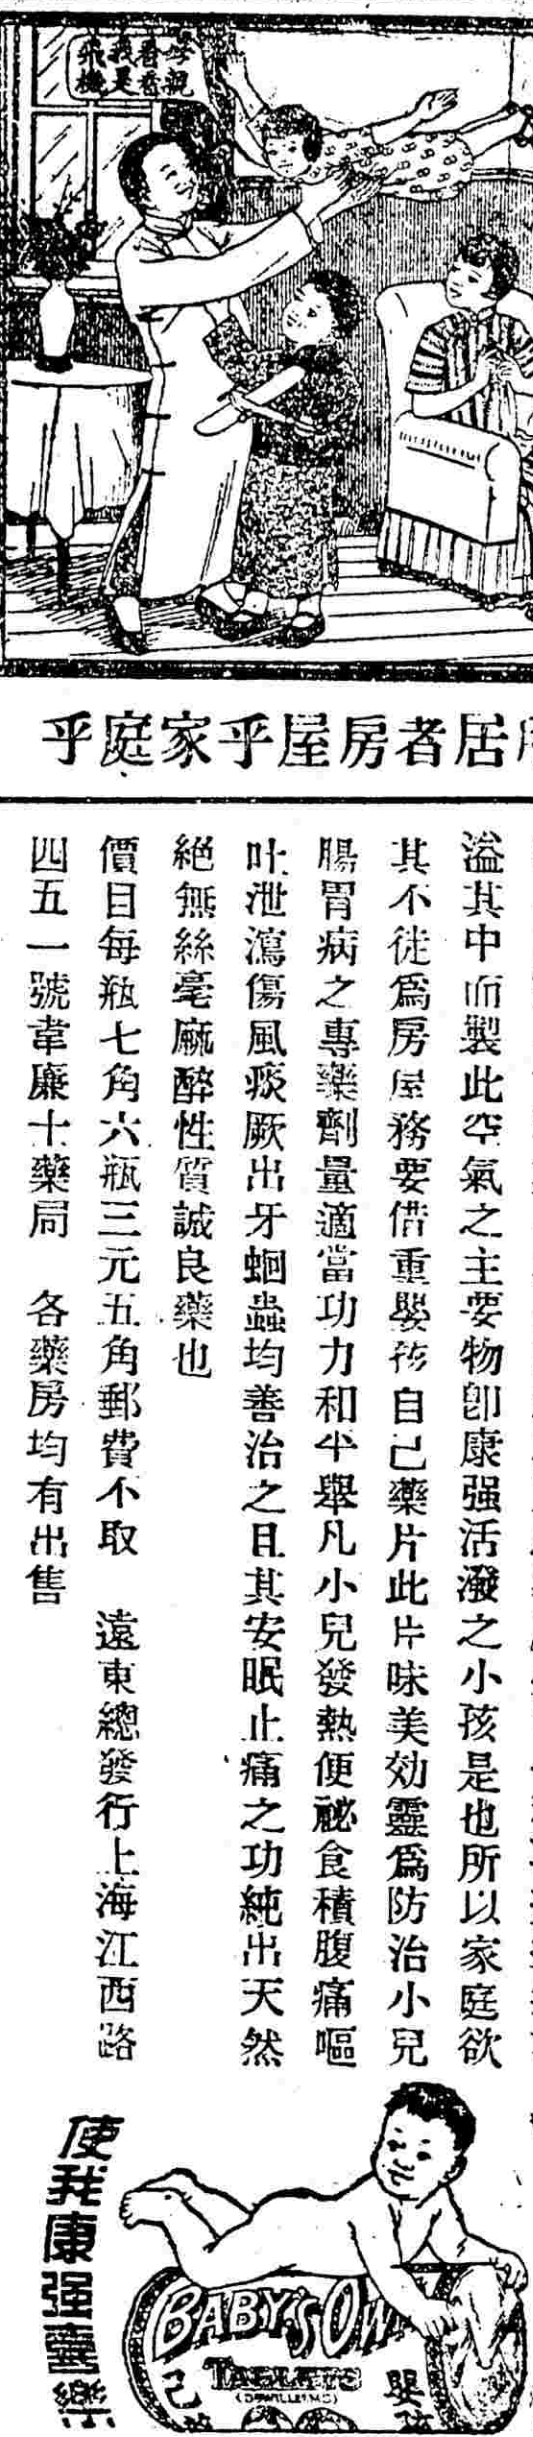 母親
看看
我是
飛機
居者房屋乎家庭乎
溢其中而製此空氣之主要物卽康强活潑之小孩是也所以家庭欲
其不徒爲房屋務要借重嬰孩自己藥片此片味美効靈爲防治小兒
腸胃病之專藥劑量適當功力和平舉凡小兒發熱便祕食積腹痛嘔
吐泄瀉傷風痰厥出牙蛔蟲均善治之且其安眠止痛之功純出天然
絕無絲毫麻醉性質誠良藥也
價目每瓶七角六瓶三元五角郵費不取 遠東總發行上海江西路
四五一號韋廉士藥局 各藥房均有出售
使我康强喜樂
BABY'S OW
TABLETS
(DR WILLIAMS)
嬰孩
己